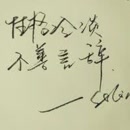 性格冷淡
不善言辞